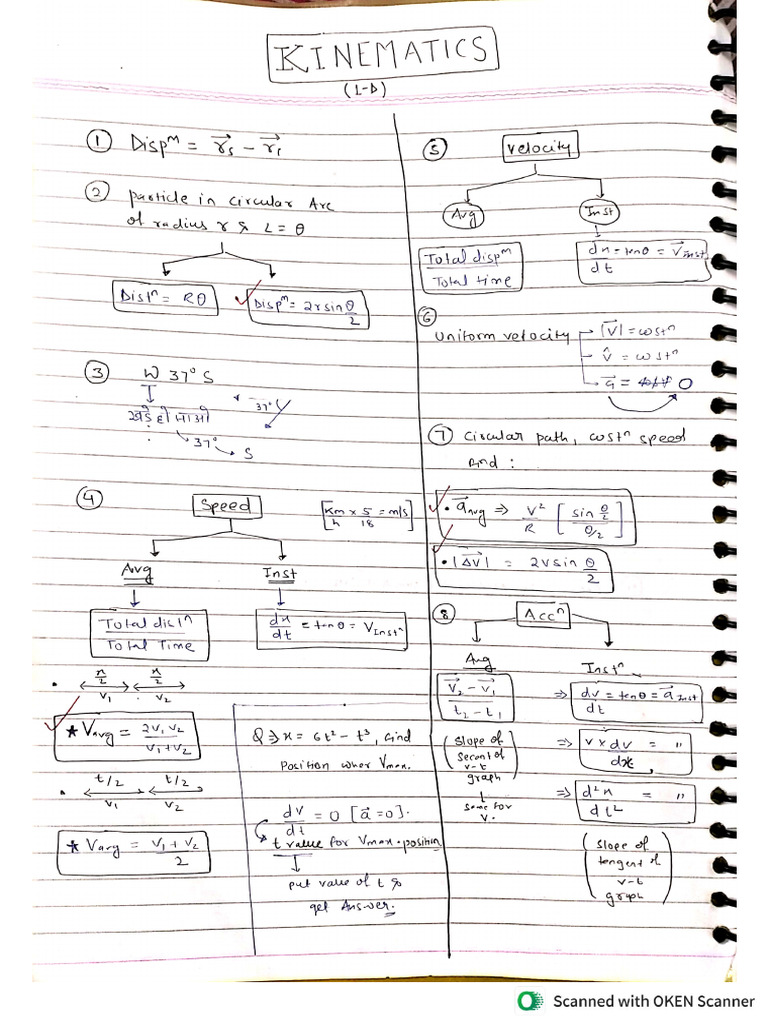 KINEMATICS
(1-D)
① Dispᵐ = r⃗₅ - r⃗₁
② particle in circular Arc
of radius r & ∠ = θ
Distⁿ = Rθ
Dispᵐ = 2r sin θ/2
③ W 37° S
खड़े हो जाओ
37°
S
37°
④ Speed
[Km/h × 5/18 = m/s]
Avg
Inst
Total distⁿ / Total Time
dx/dt = tanθ = V Instⁿ
• x/2 x/2
V₁ V₂
* Vavg = 2V₁V₂ / V₁+V₂
• t/2 t/2
V₁ V₂
* Vavg = V₁+V₂ / 2
Q ⇒ x = 6t² - t³, find
position when Vmax.
dv/dt = 0 [a⃗ = 0].
t value for Vmax. position
put value of t &
get Answer.
⑤ Velocity
Avg
Inst
Total dispᵐ / Total time
dx/dt = tanθ = V⃗ inst
⑥
Uniform velocity
|V⃗| = costⁿ
V̂ = costⁿ
a⃗ = 0
⑦ Circular path, costⁿ speed
find :
• a⃗avg ⇒ V²/R [sin θ/2 / θ/2]
• |Δ⃗v| = 2v sin θ/2
⑧ Accⁿ
Avg
Instⁿ
V⃗₂ - V⃗₁ / t₂ - t₁
(slope of
secent of
v-t
graph)
same for
V.
⇒ dv/dt = tanθ = a⃗ Inst
⇒ v × dv/dx = "
⇒ d²x/dt² = "
(slope of
tengent of
v-t
graph)
Scanned with OKEN Scanner